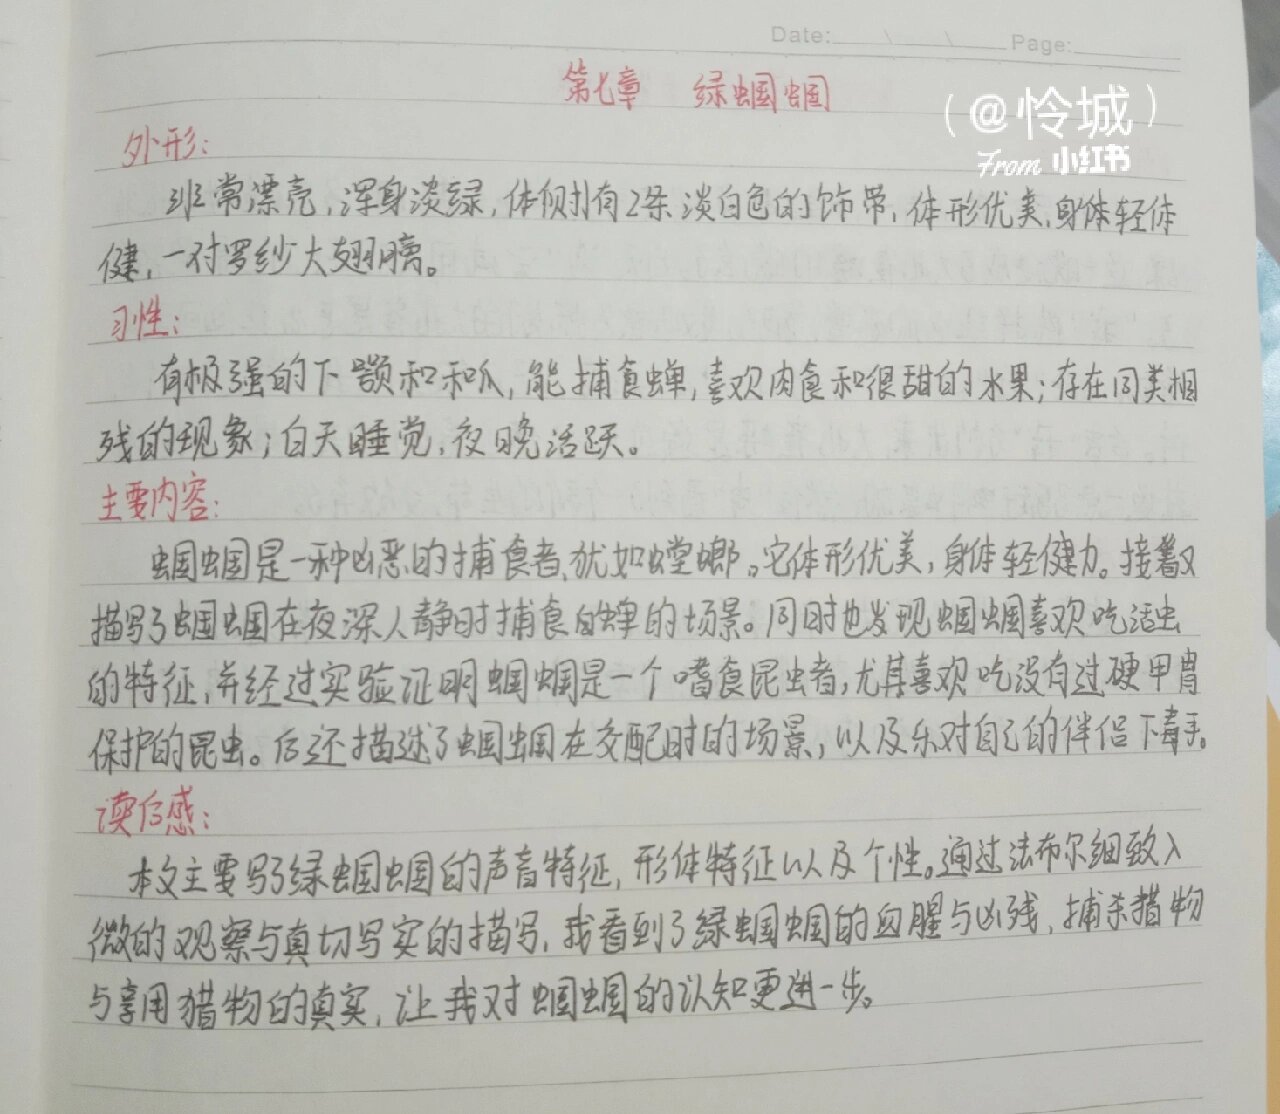 Date: \ \ Page:
第七章 绿蝈蝈
(@怜城)
From 小红书
外形:
非常漂亮,浑身淡绿,体侧有2条淡白色的饰带,体形优美,身体轻体
健,一对罗纱大翅膀。
习性:
有极强的下颚和和爪,能捕食蝉,喜欢肉食和很甜的水果;存在同类相
残的现象;白天睡觉,夜晚活跃。
主要内容:
蝈蝈是一种凶恶的捕食者、犹如螳螂。它体形优美,身体轻健力。接着又
描写了蝈蝈在夜深人静时捕食蝉的场景。同时也发现蝈蝈喜欢吃活虫
的特征,并经过实验证明蝈蝈是一个嗜食昆虫者,尤其喜欢吃没有过硬甲胄
保护的昆虫。后还描述了蝈蝈在交配时的场景,以及乐对自己的伴侣下毒手。
读后感:
本文主要写了绿蝈蝈的声音特征,形体特征以及个性。通过法布尔细致入
微的观察与真切写实的描写,我看到了绿蝈蝈的血腥与凶残,捕杀猎物
与享用猎物的真实,让我对蝈蝈的认知更进一步。